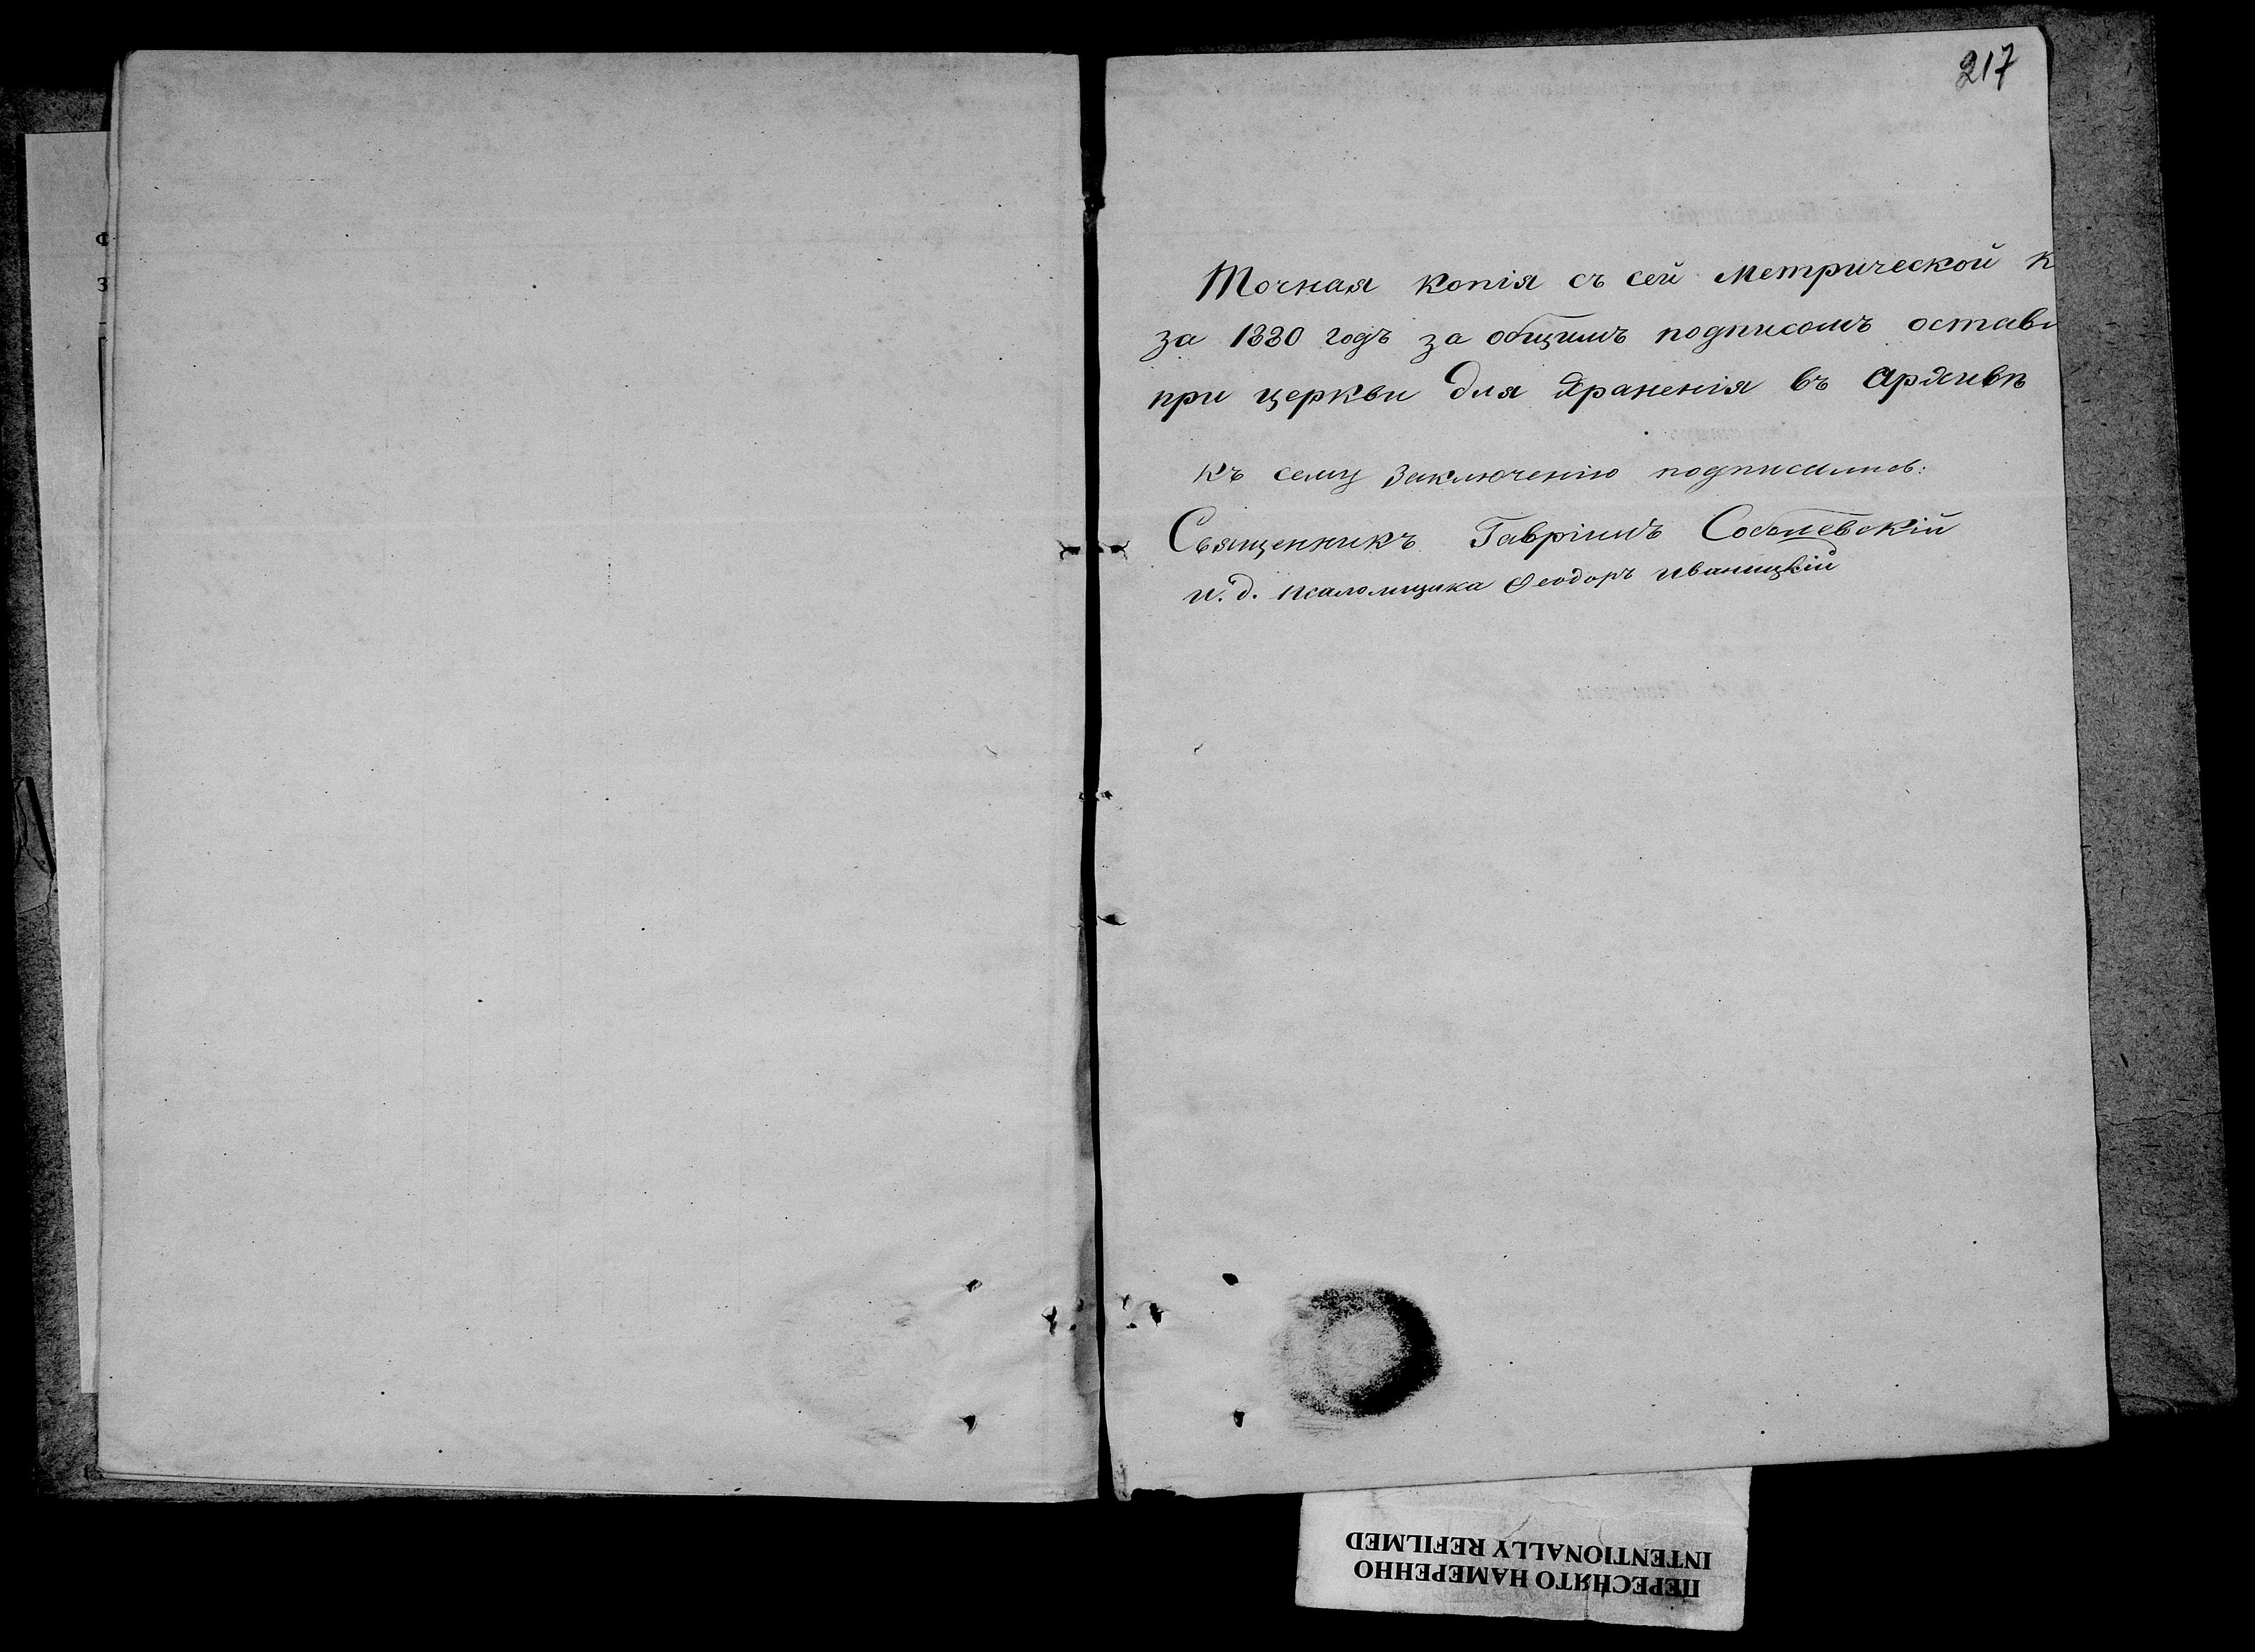 217
Точная копія съ сей Метрической к
за 1880 годъ за общимъ подписомъ остав
при церкви для храненія въ Архивѣ
къ сему заключенію подписались:
Священникъ Гавріилъ Соболевскій
и. д. псаломщика Ѳеодоръ Иваницкій
ПЕРЕСНЯТО НАМЕРЕННО
INTENTIONALLY REFILMED